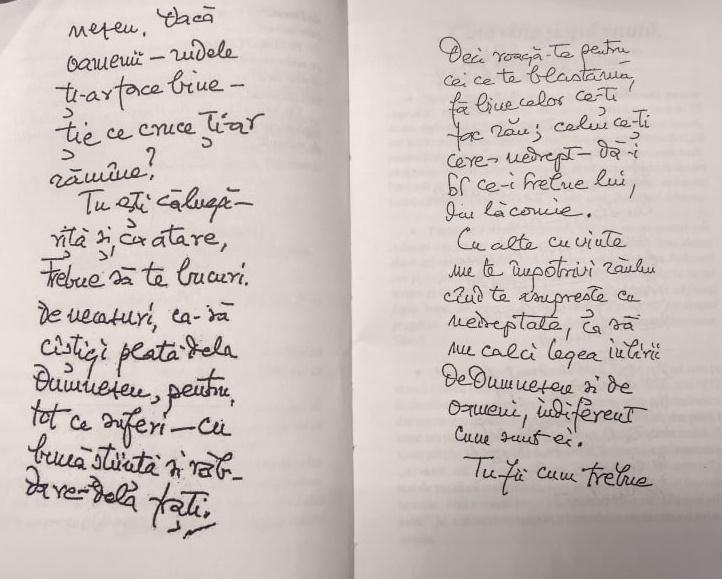 nezeu. Dacă
oamenii – rudele
ți-ar face bine –
ție ce cruce ți-ar
rămîne?
Tu ești călugă-
riță și, ca atare,
trebue să te bucuri.
de necazuri, ca să
cîstigi plată dela
Dumnezeu, pentru
tot ce suferi – cu
bună știință și răb-
dare – dela frați.
Deci roagă-te pentru
cei ce te blastămă,
fă bine celor ce-ți
fac rău; celui ce-ți
cere – nedrept – dă-i
ce-i trebue lui,
din lăcomie.
Cu alte cuvinte
nu te împotrivi răului
cînd te asuprește cu
nedreptate, ca să
nu calci legea iubirii
De Dumnezeu și de
oameni, indiferent
cum sunt ei.
Tu fii cum trebue